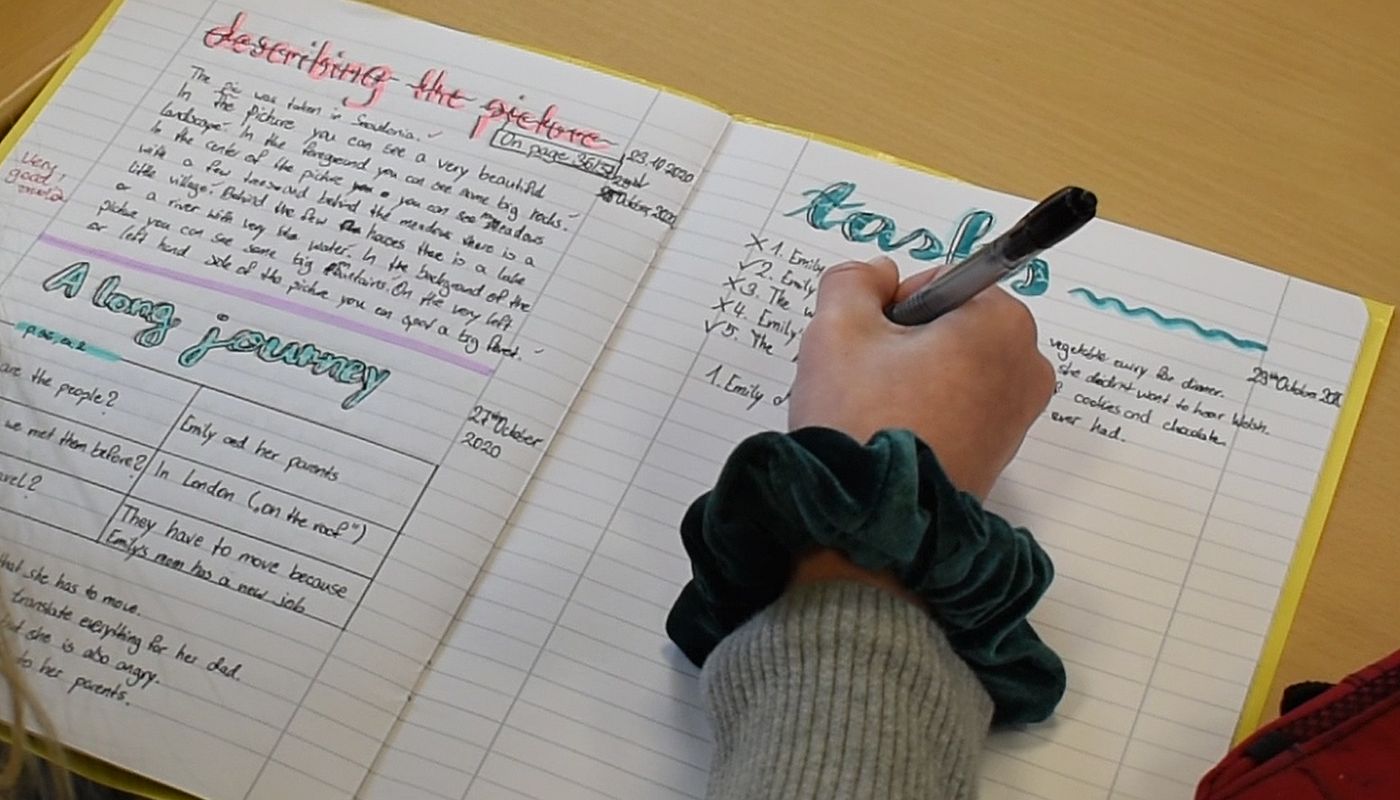 describing the picture
On page 36/37
23.10.2020
October 2020
The pic was taken in Snowdonia. ✓
In the picture you can see a very beautiful
landscape. In the foreground you can see some big rocks. ✓
In the center of the picture you can see meadows
with a few trees and behind the meadows there is a
little village. Behind the few houses there is a lake
or a river with very water. In the background of the
picture you can see some big On the very left
or left hand side of the picture you can a big forest. ✓
very
good
A long journey
p.20, a.2
27th October
2020
are the people?
Emily and her parents
we met them before?
In London („on the roof")
avel?
They have to move because
Emily's mom has a new job
that she has to move.
translate everything for her dad.
but she is also angry.
to her parents.
tasks
29th October 2020
X 1. Emily vegetable curry for dinner.
✓ 2. Emily she didn't want to hear Welsh.
X 3. The w cookies and chocolate.
X 4. Emily's ever had.
✓ 5. The
1. Emily